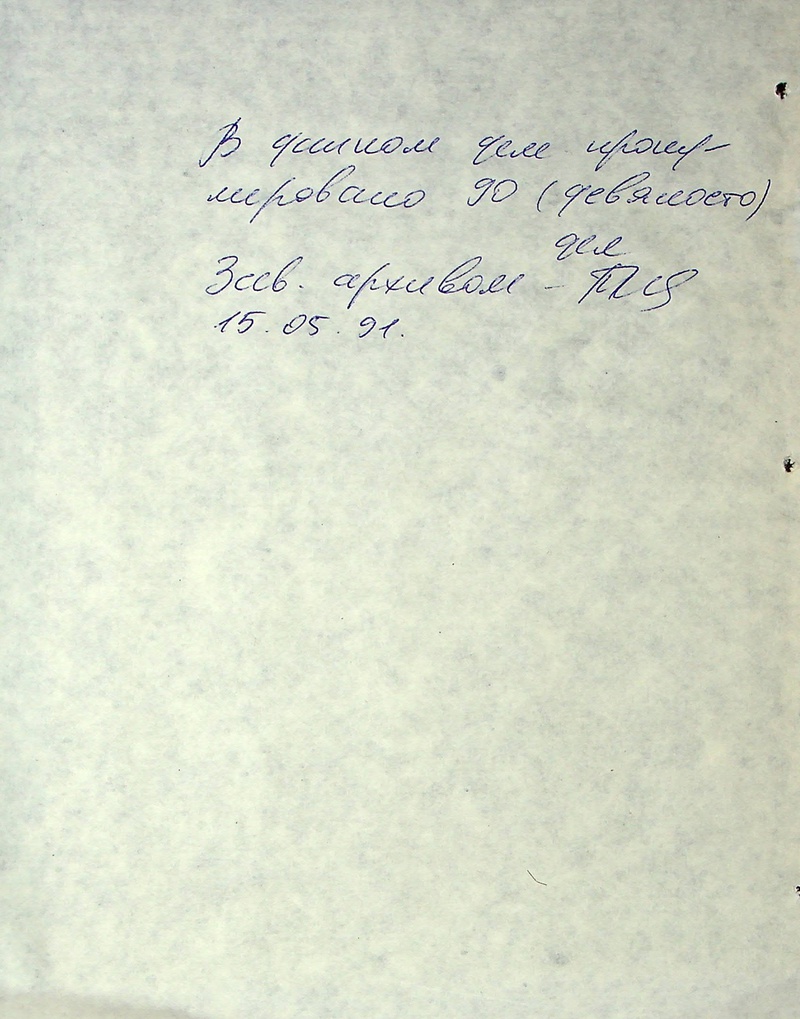 В данном деле прону-
меровано 90 (девяносто)
дел
Зав. архивом -
15.05.91.